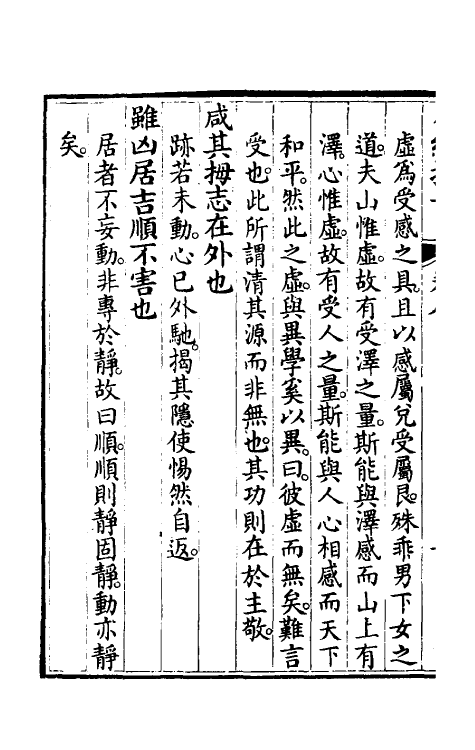 虛為受感之具。且以感屬兌受屬艮。殊乖男下女之
道。夫山惟虛。故有受澤之量。斯能與澤感而山上有
澤。心惟虛。故有受人之量。斯能與人心相感而天下
和平。然此之虛。與異學奚以異。曰。彼虛而無矣。難言
受也。此所謂清其源而非無也。其功則在於主敬。
咸其拇志在外也
跡若未動。心已外馳。揭其隱使惕然自返。
雖凶居吉順不害也
居者不妄動。非專於靜。故曰順。順則靜固靜。動亦靜
矣。